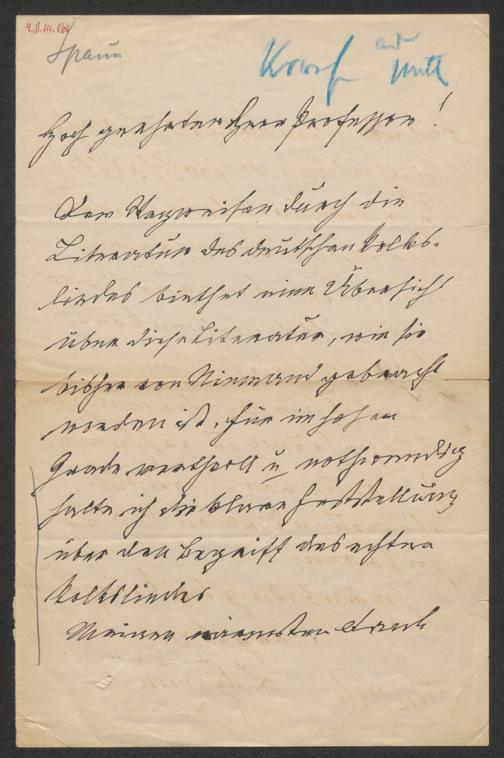 Spaun
und
Hoch geehrter Herr Professor!
Der Wegweiser durch die
Literatur des deutschen Volks-
liedes biethet eine Übersicht
über diese Literatur, wie sie
bisher von Niemand gebracht
worden ist. Für im hohen
Grade werthvoll u nothwendig
halte ich die klare Feststellung
über den Begriff des echten
Volksliedes
Meinen wärmsten Dank